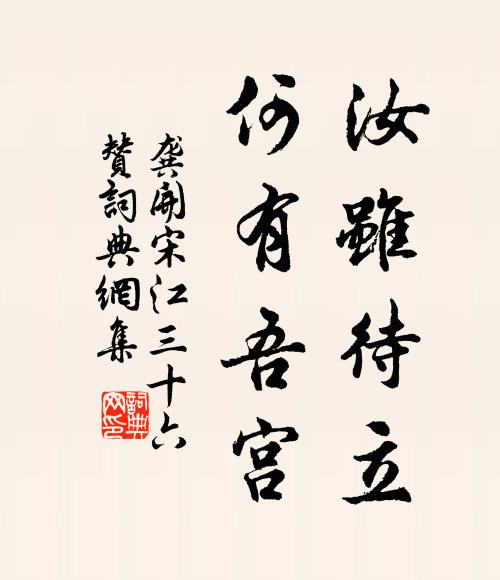 汝雖待立
何有吾宮
龔開宋江三十六
贊詞典網集
詞典
网印